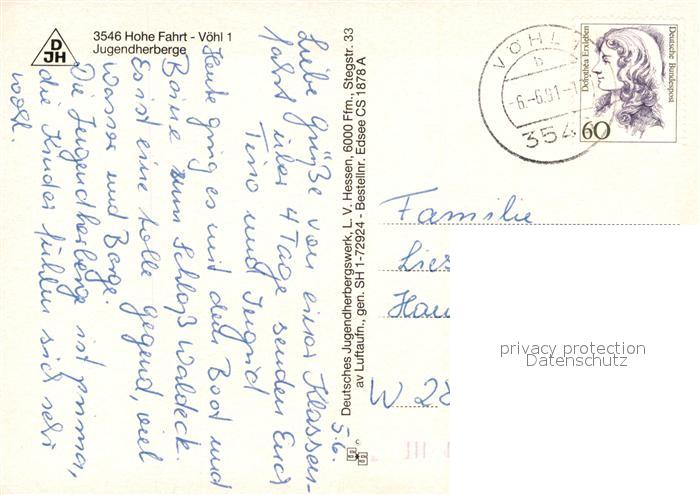 DJH
3546 Hohe Fahrt - Vöhl 1
Jugendherberge
5.6.
Liebe Grüße von einer Klassen-
fahrt über 4 Tage senden Euch
Tino und Ingrid
Heute ging es mit dem Boot und
Beine zum Schloß Waldeck.
Es ist eine tolle Gegend, viel
Wasser und Berge.
Die Jugendherberge ist prima,
die Kinder fühlen sich sehr
wohl.
Deutsches Jugendherbergswerk, L. V. Hessen, 6000 Ffm., Stegstr. 33
av Luftaufn., gen. SH 1-72924 - Bestellnr. Edsee CS 1878 A
VÖHL
b
-6.-6.91-
354
Dorothea Erxleben
Deutsche Bundespost
60
Familie
W 28
privacy protection
Datenschutz